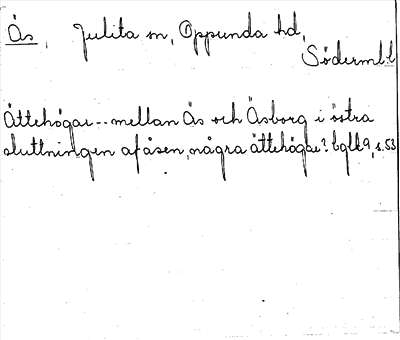 Ås, Julita sn, Oppunda hd,
Söderml. l
Ättehögar -- mellan Ås och Äsborg i östra
sluttningen af åsen, några ättehögar? bglk 9, s. 53